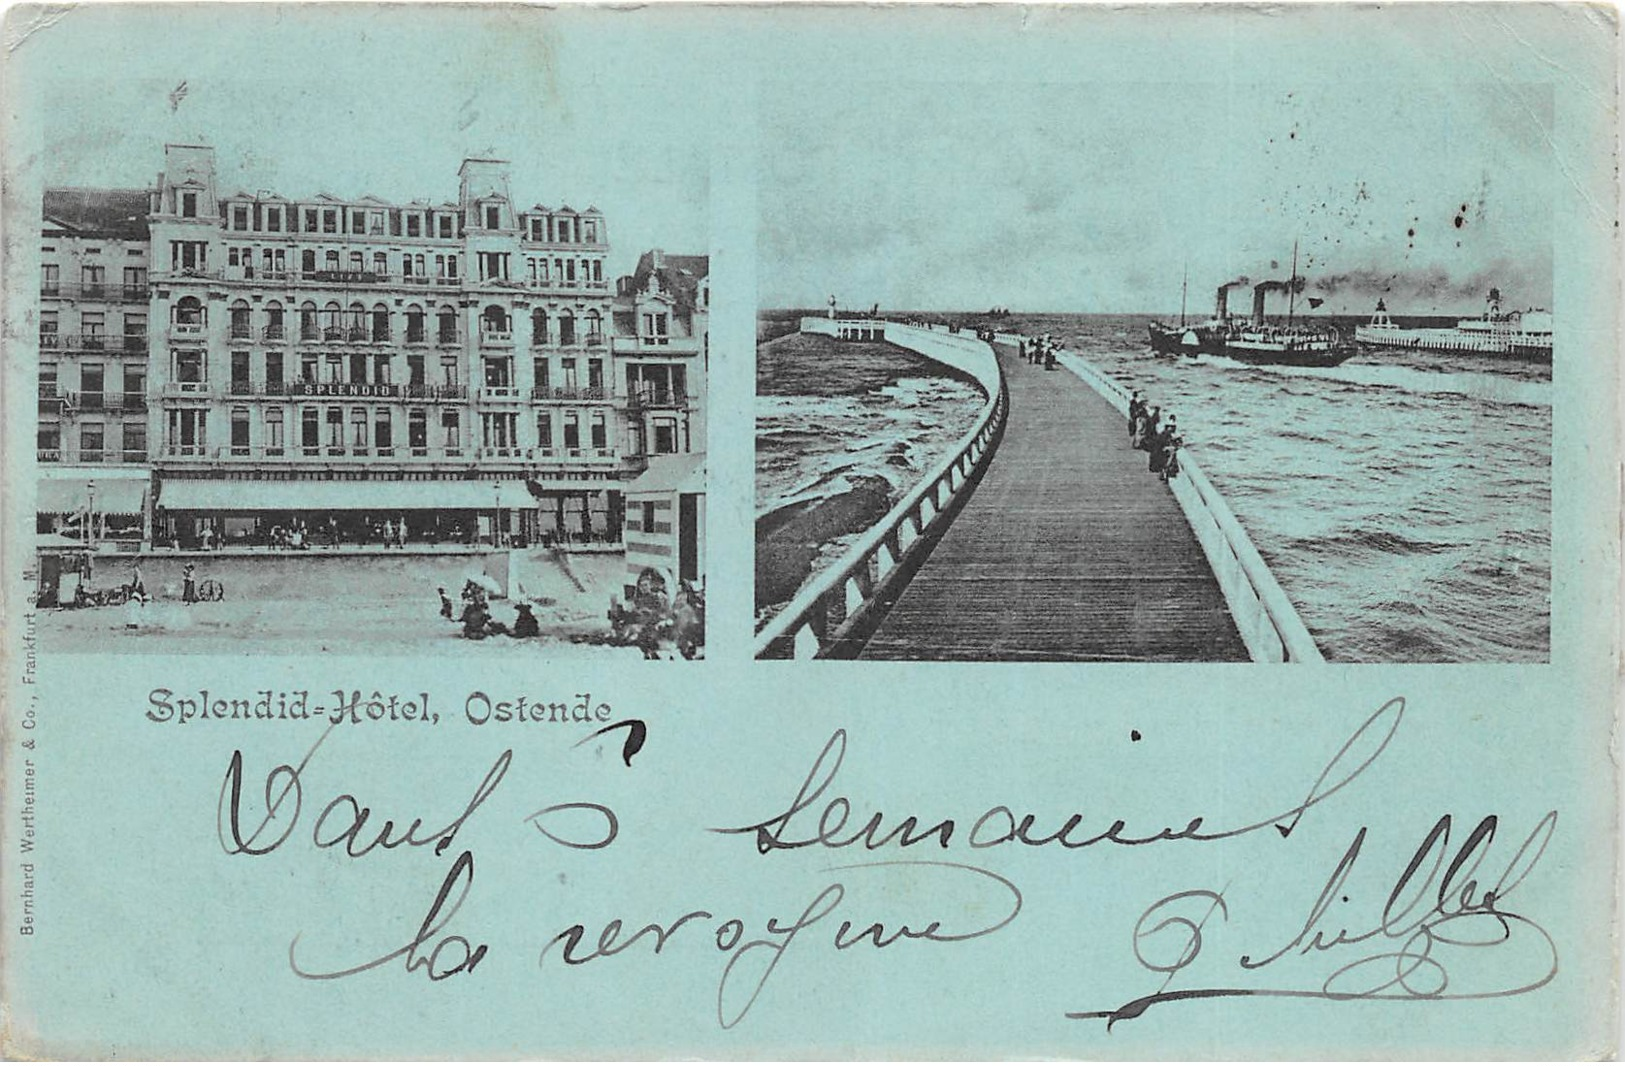 SPLENDID
Splendid-Hôtel, Ostende
Dans 5 semaines
la revoyure
Bernhard Wertheimer & Co., Frankfurt a. M.